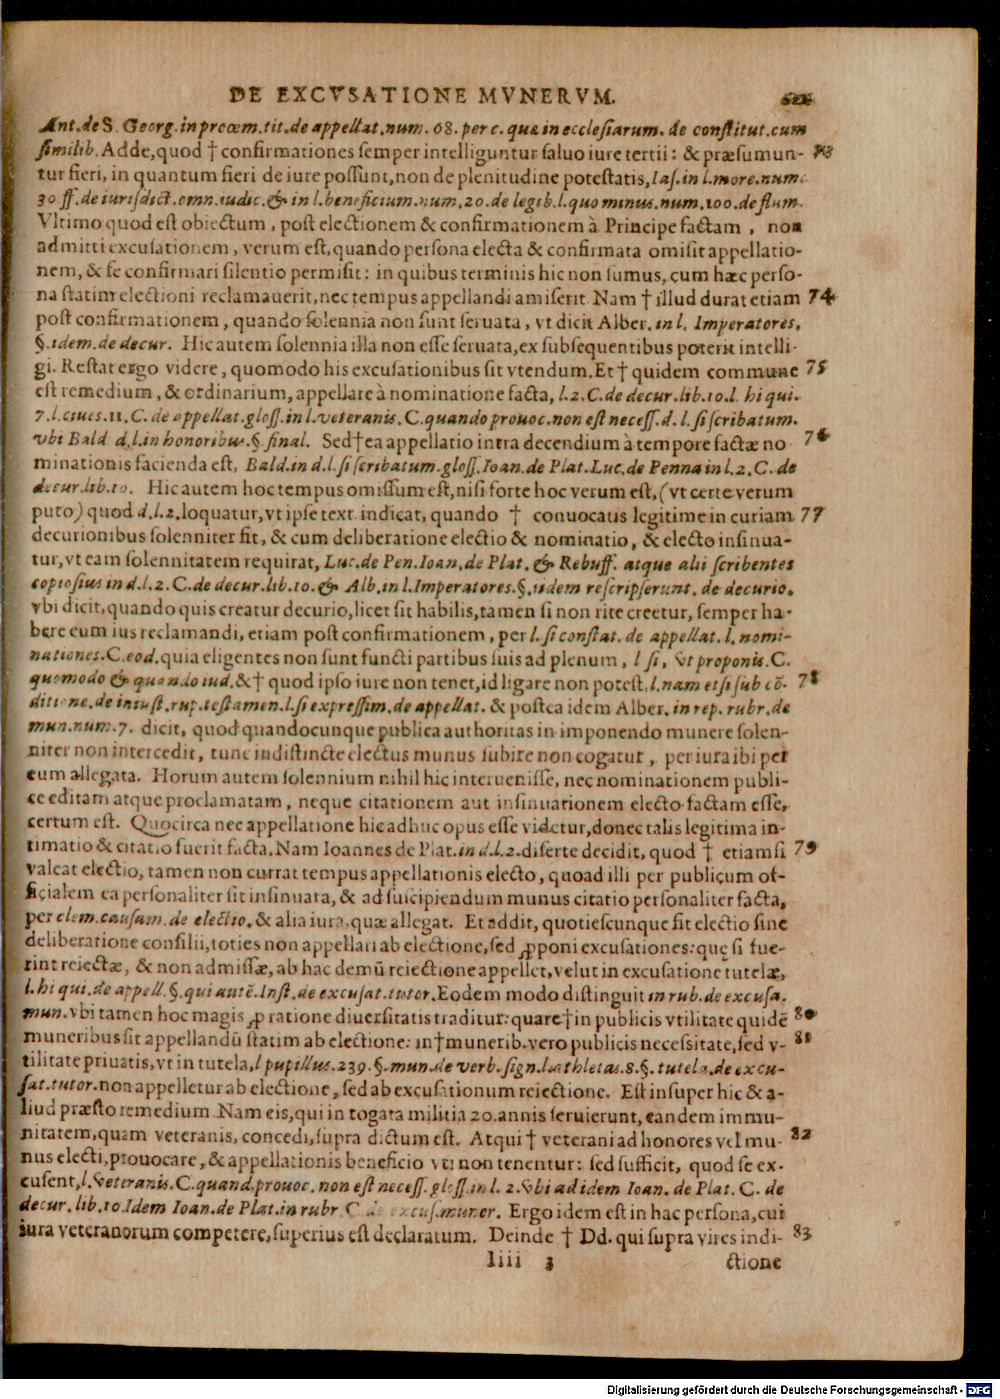 DE EXCVSATIONE MVNERVM.
Ant. de S. Georg. in proœm. tit. de appellat. num. 68. per c. quæ in ecclesiarum. de constitut. cum
similib. Adde, quod † confirmationes semper intelliguntur saluo iure tertii: & præsumun- 73
tur fieri, in quantum fieri de iure possunt, non de plenitudine potestatis, Ias. in l. more. num.
30 ff. de iurisdict. omn. iudic. & in l. beneficium. num. 20. de legib. l. quo minus. num. 100. de flum.
Vltimo quod est obiectum, post electionem & confirmationem à Principe factam, non
admitti excusationem, verum est, quando persona electa & confirmata omisit appellatio-
nem, & se confirmari silentio permisit: in quibus terminis hic non sumus, cum hæc perso-
na statim electioni reclamauerit, nec tempus appellandi amiserit. Nam † illud durat etiam 74
post confirmationem, quando solennia non sunt seruata, vt dicit Alber. in l. Imperatores.
§. idem. de decur. Hic autem solennia illa non esse seruata, ex subsequentibus poterit intelli-
gi. Restat ergo videre, quomodo his excusationibus sit vtendum. Et † quidem commune 75
est remedium, & ordinarium, appellare à nominatione facta, l. 2. C. de decur. lib. 10. l. hi qui.
7. l. ciues. 11. C. de appellat. gloss. in l. veteranis. C. quando prouoc. non est necess. d. l. si scribatum.
vbi Bald d. l. in honoribus. §. final. Sed † ea appellatio intra decendium à tempore factæ no 76
minationis facienda est, Bald. in d. l. si scribatum. gloss. Ioan. de Plat. Luc. de Penna in l. 2. C. de
decur. lib. 10. Hic autem hoc tempus omissum est, nisi forte hoc verum est, (vt certe verum
puto) quod d. l. 2. loquatur, vt ipse text. indicat, quando † conuocatis legitime in curiam 77
decurionibus solenniter fit, & cum deliberatione electio & nominatio, & electo insinua-
tur, vt eam solennitatem requirat, Luc. de Pen. Ioan. de Plat. & Rebuff. atque alii scribentes
copiosius in d. l. 2. C. de decur. lib. 10. & Alb. in l. Imperatores. §. iidem rescripserunt. de decurio.
vbi dicit, quando quis creatur decurio, licet sit habilis, tamen si non rite creetur, semper ha-
bere eum ius reclamandi, etiam post confirmationem, per l. si constat. de appellat. l. nomi-
nationes. C. eod. quia eligentes non sunt functi partibus suis ad plenum, l si, vt proponis. C.
quomodo & quando iud. & † quod ipso iure non tenet, id ligare non potest. l. nam etsi sub cō- 78
ditione. de iniust. rup. testamen. l. si expressim. de appellat. & postea idem Alber. in rep. rubr. de
mun. num. 7. dicit, quod quandocunque publica authoritas in imponendo munere solen-
niter non intercedit, tunc indistincte electus munus subire non cogatur, per iura ibi per
eum allegata. Horum autem solennium nihil hic interuenisse, nec nominationem publi-
ce editam atque proclamatam, neque citationem aut insinuationem electo factam esse,
certum est. Quocirca nec appellatione hic adhuc opus esse videtur, donec talis legitima in-
timatio & citatio fuerit facta. Nam Ioannes de Plat. in d. l. 2. diserte decidit, quod † etiamsi 79
valeat electio, tamen non currat tempus appellationis electo, quoad illi per publicum of-
ficialem ea personaliter sit insinuata, & ad suscipiendum munus citatio personaliter facta,
per clem. causam. de electio. & alia iura, quæ allegat. Et addit, quotiescunque fit electio sine
deliberatione consilii, toties non appellari ab electione, sed ꝓponi excusationes: quę si fue-
rint reiectæ, & non admissæ, ab hac demū reiectione appellet, velut in excusatione tutelæ,
l. hi qui. de appell. §. qui autē. Inst. de excusat. tutor. Eodem modo distinguit in rub. de excusa.
mun. vbi tamen hoc magis ꝓ ratione diuersitatis traditur: quare † in publicis vtilitate quidē 80
muneribus sit appellandū statim ab electione: in † munerib. vero publicis necessitate, sed v- 81
tilitate priuatis, vt in tutela, l pupillus. 239. §. mun. de verb. sign. l. athletas. 8. §. tutela. de excu-
sat. tutor. non appelletur ab electione, sed ab excusationum reiectione. Est insuper hic & a-
liud præsto remedium. Nam eis, qui in togata militia 20. annis seruierunt, eandem immu-
nitatem, quam veteranis, concedi, supra dictum est. Atqui † veterani ad honores vel mu- 82
nus electi, prouocare, & appellationis beneficio vti non tenentur: sed sufficit, quod se ex-
cusent, l. veteranis. C. quand. prouoc. non est necess. gloss. in l. 2. vbi ad idem Ioan. de Plat. C. de
decur. lib. 10. Idem Ioan. de Plat. in rubr C de excus. muner. Ergo idem est in hac persona, cui
iura veteranorum competere, superius est declaratum. Deinde † Dd. qui supra vires indi- 83
Iiii 3 ctione
Digitalisierung gefördert durch die Deutsche Forschungsgemeinschaft - DFG